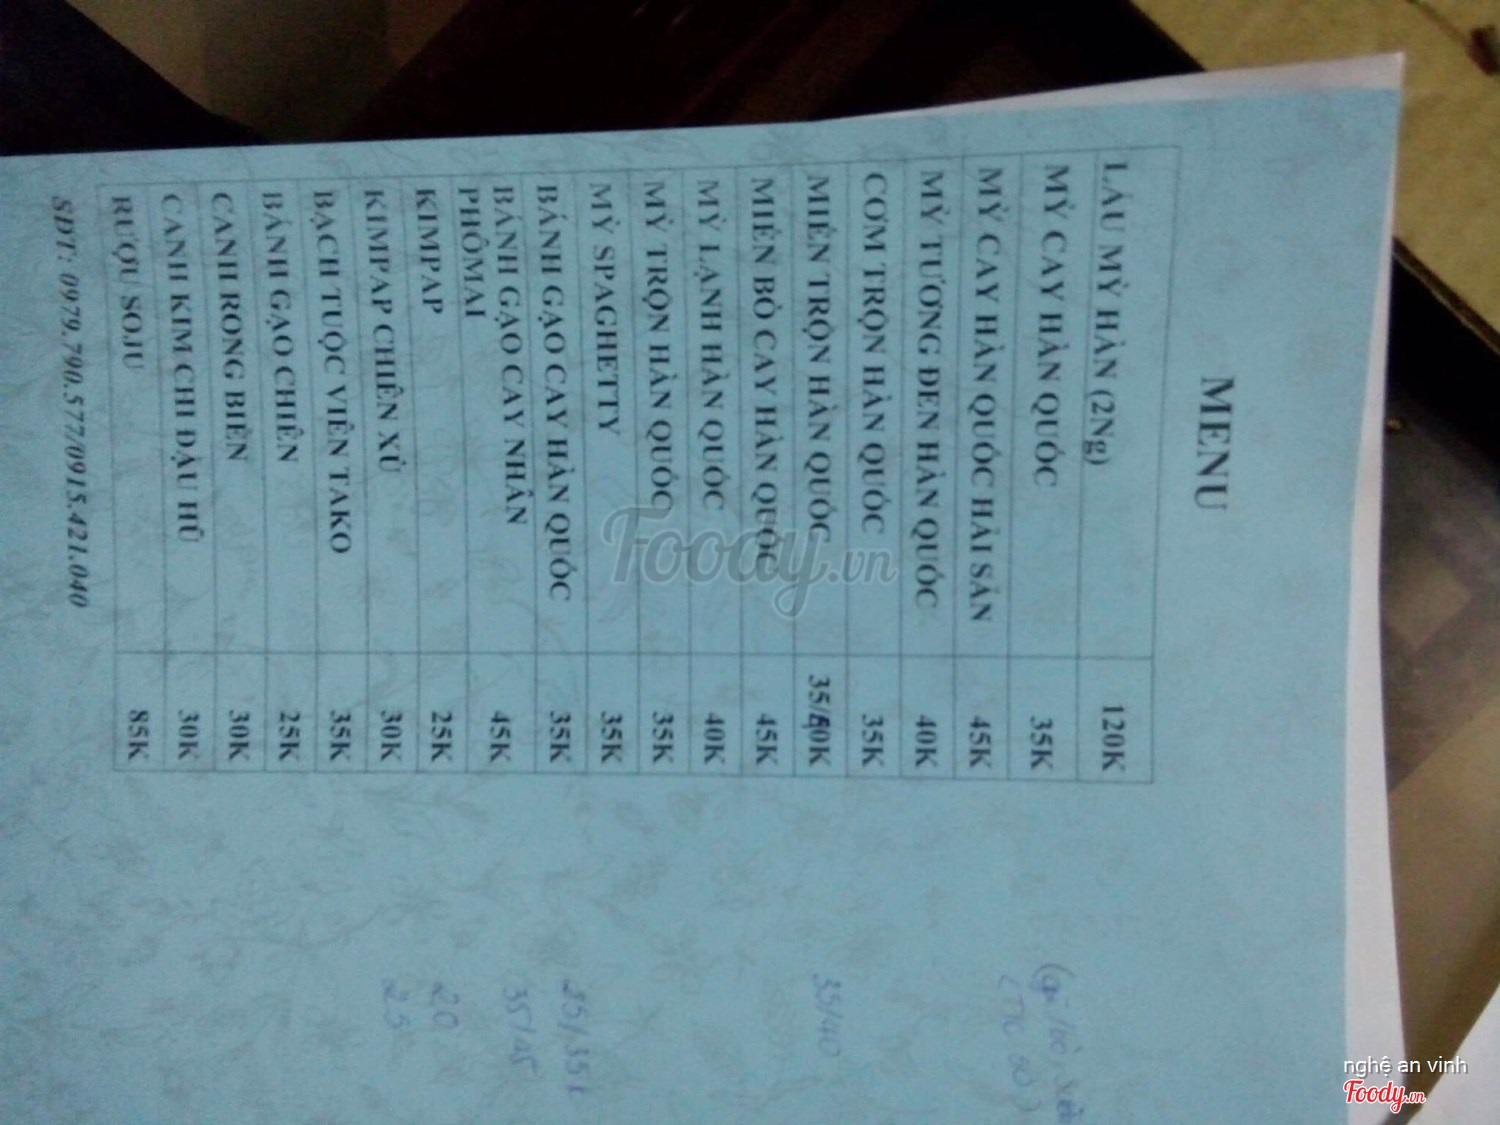 MENU
LẨU MỲ HÀN (2Ng) 120K
MỲ CAY HÀN QUỐC 35K
MỲ CAY HÀN QUỐC HẢI SẢN 45K
MỲ TƯƠNG ĐEN HÀN QUỐC 40K
CƠM TRỘN HÀN QUỐC 35K
MIẾN TRỘN HÀN QUỐC 35/40K
MIẾN BÒ CAY HÀN QUỐC 45K
MỲ LẠNH HÀN QUỐC 40K
MỲ TRỘN HÀN QUỐC 35K
MỲ SPAGHETTY 35K
BÁNH GẠO CAY HÀN QUỐC 35K
BÁNH GẠO CAY NHÂN
PHÔMAI 45K
KIMPAP 25K
KIMPAP CHIÊN XÙ 30K
BẠCH TUỘC VIÊN TAKO 35K
BÁNH GẠO CHIÊN 25K
CANH RONG BIỂN 30K
CANH KIM CHI ĐẬU HŨ 30K
RƯỢU SOJU 85K
SĐT: 0979.790.577/0915.421.040
35/40
25/35k
35/45
20
25
Foody.vn
nghệ an vinh
Foody.vn